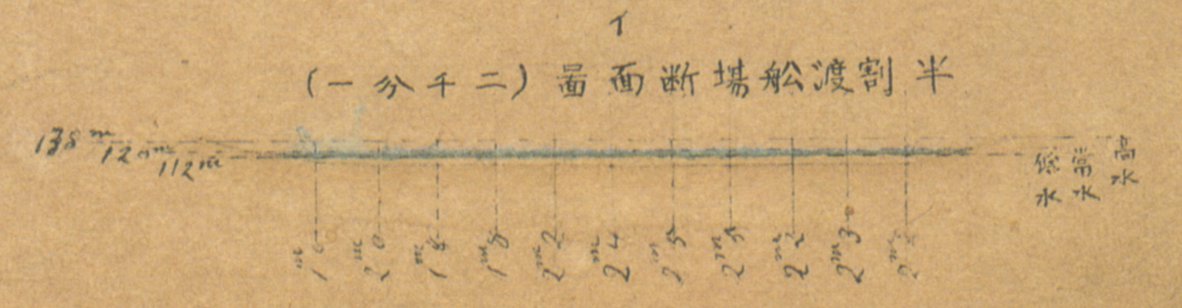 イ
半割渡舩場断面啚(二千分一)
138m
120m
112m
高水
平水
低水
1m0
2m0
1m8
1m8
2m2
2m4
2m5
2m5
2m2
2m3